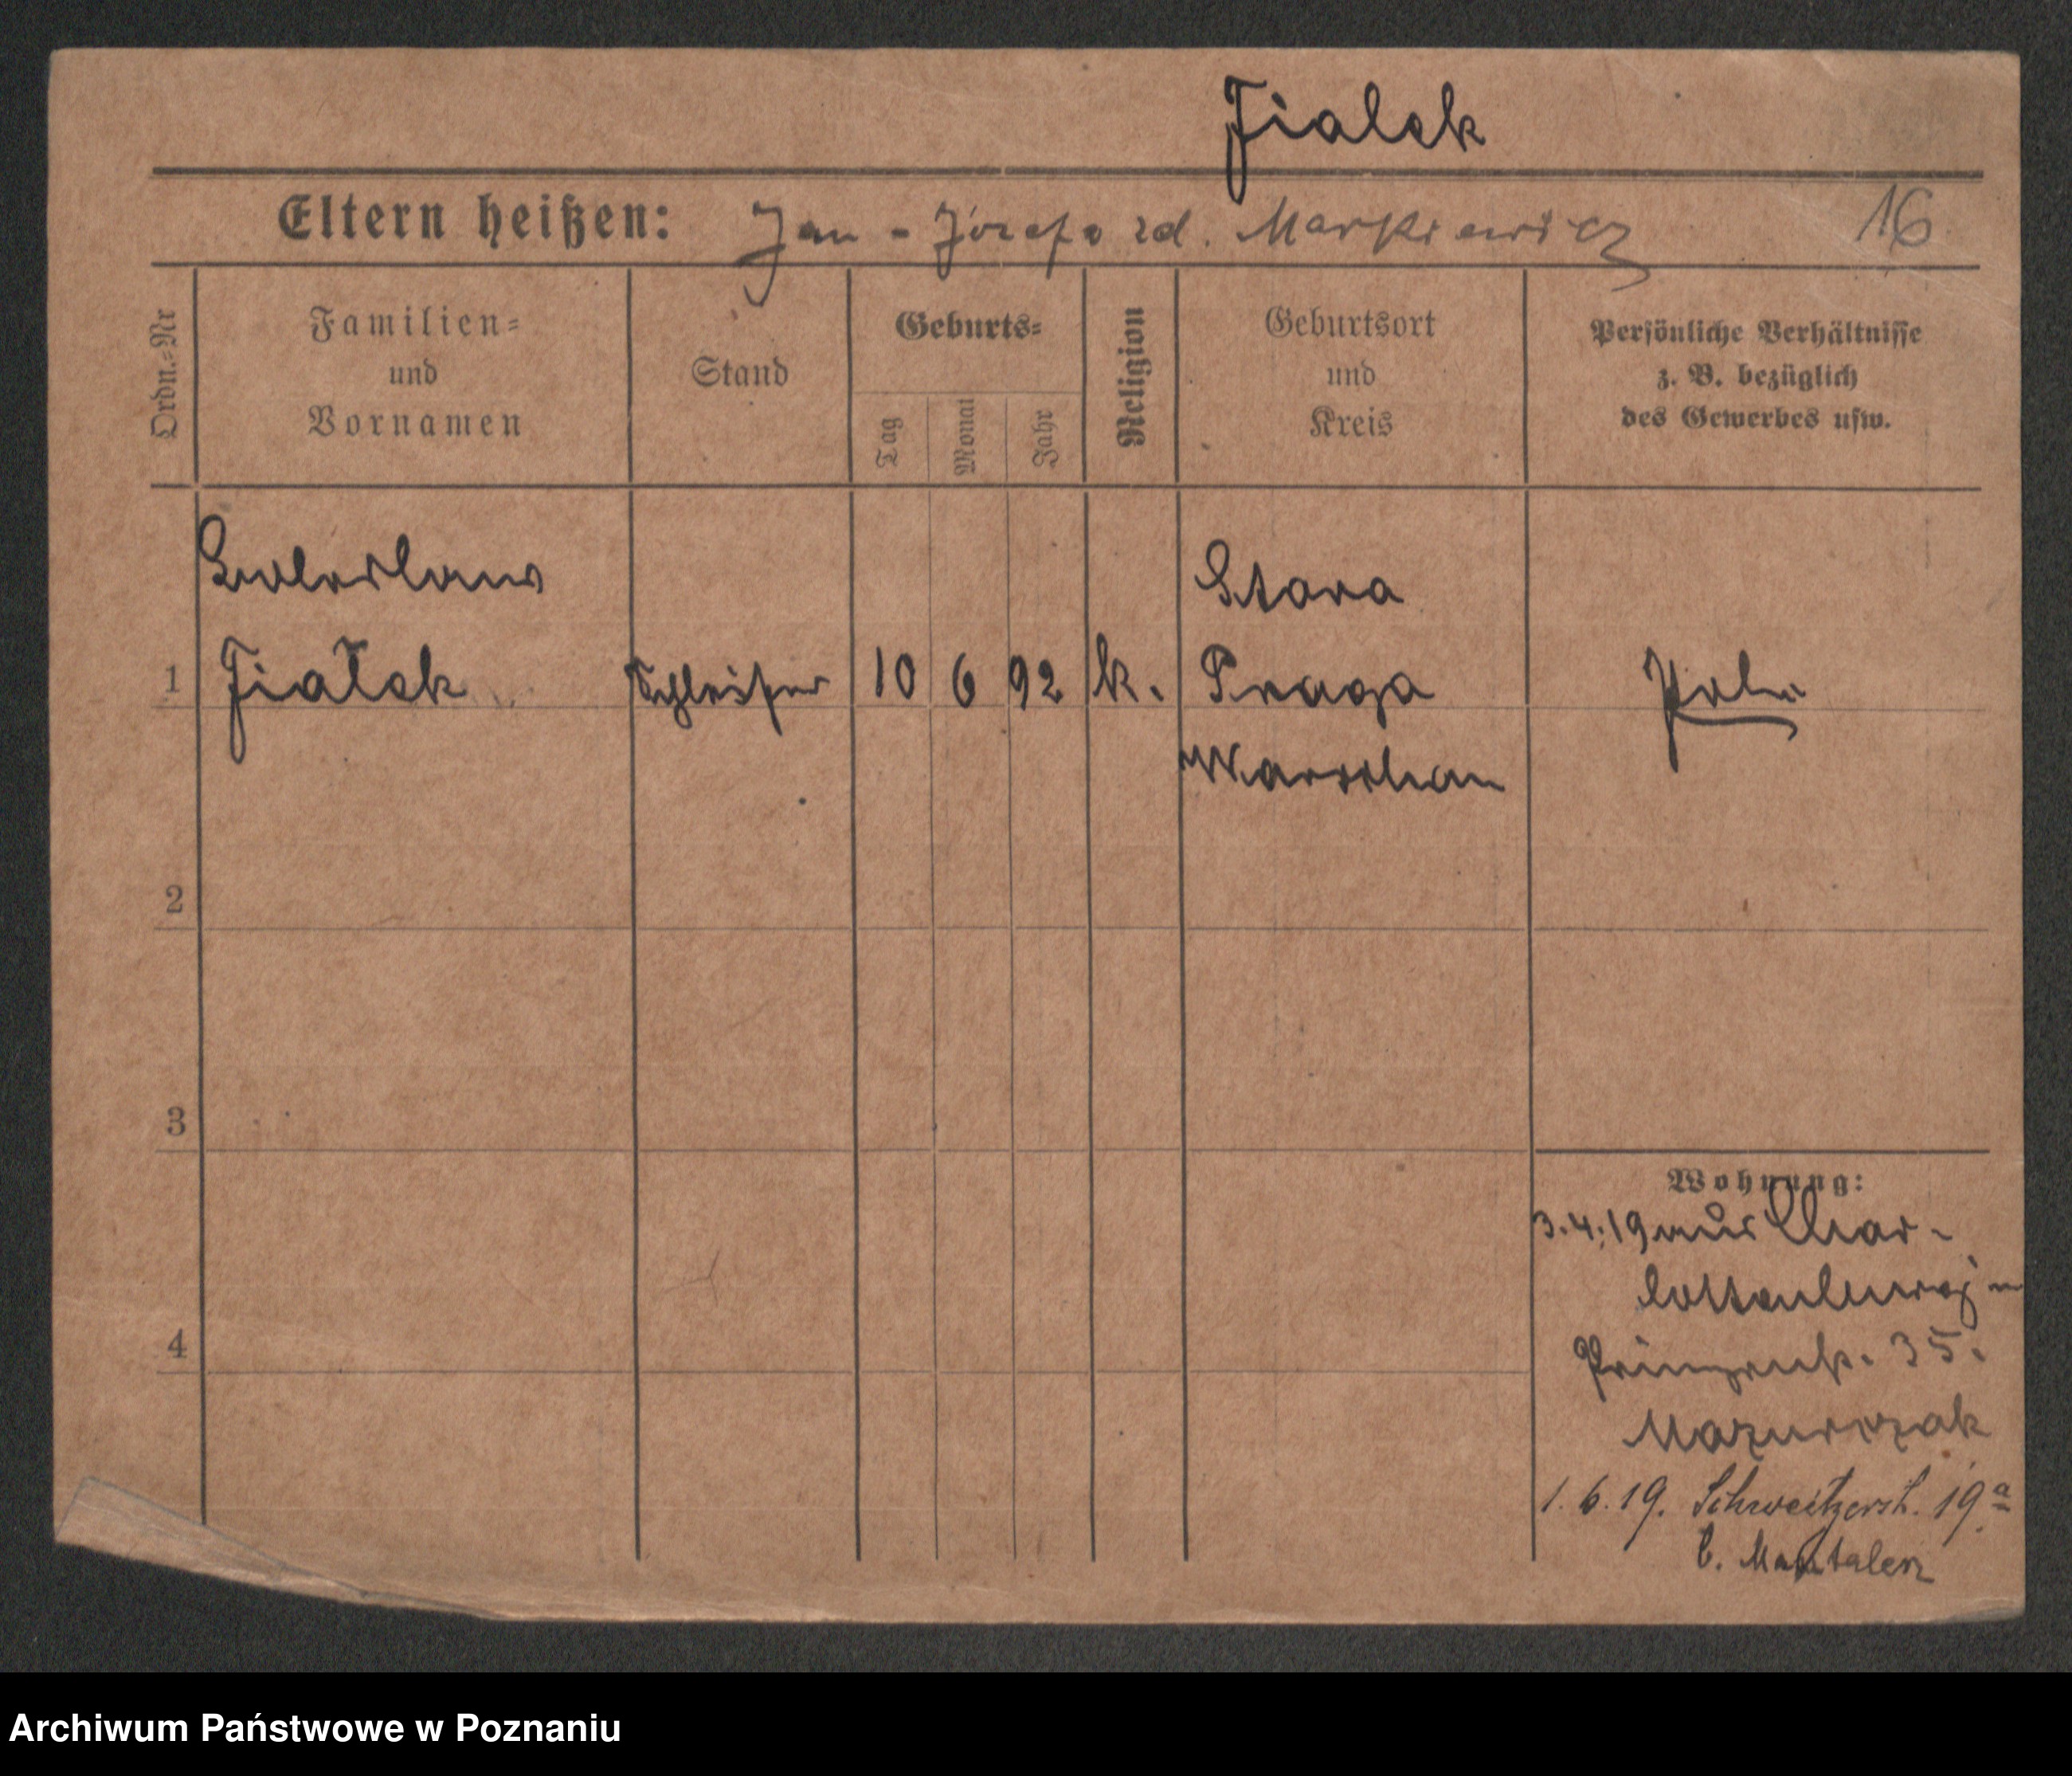 Fialek
Eltern heißen: Jan - Józefa zd. Markiewicz 16
Ordn.=Nr
Familien=
und
Vornamen
Stand
Geburts=
Tag
Monat
Jahr
Religion
Geburtsort
und
Kreis
Persönliche Verhältnisse
z. B. bezüglich
des Gewerbes usw.
Stara
1 Fiałek Schleifer 10 6 92 k. Praga Pole
Warschau
2
3
Wohnung:
3.4.19 aus Char-
lottenburg n
4
35.
Mazurczak
1.6.19. Schweitzerst. 19a
b.
Archiwum Państwowe w Poznaniu